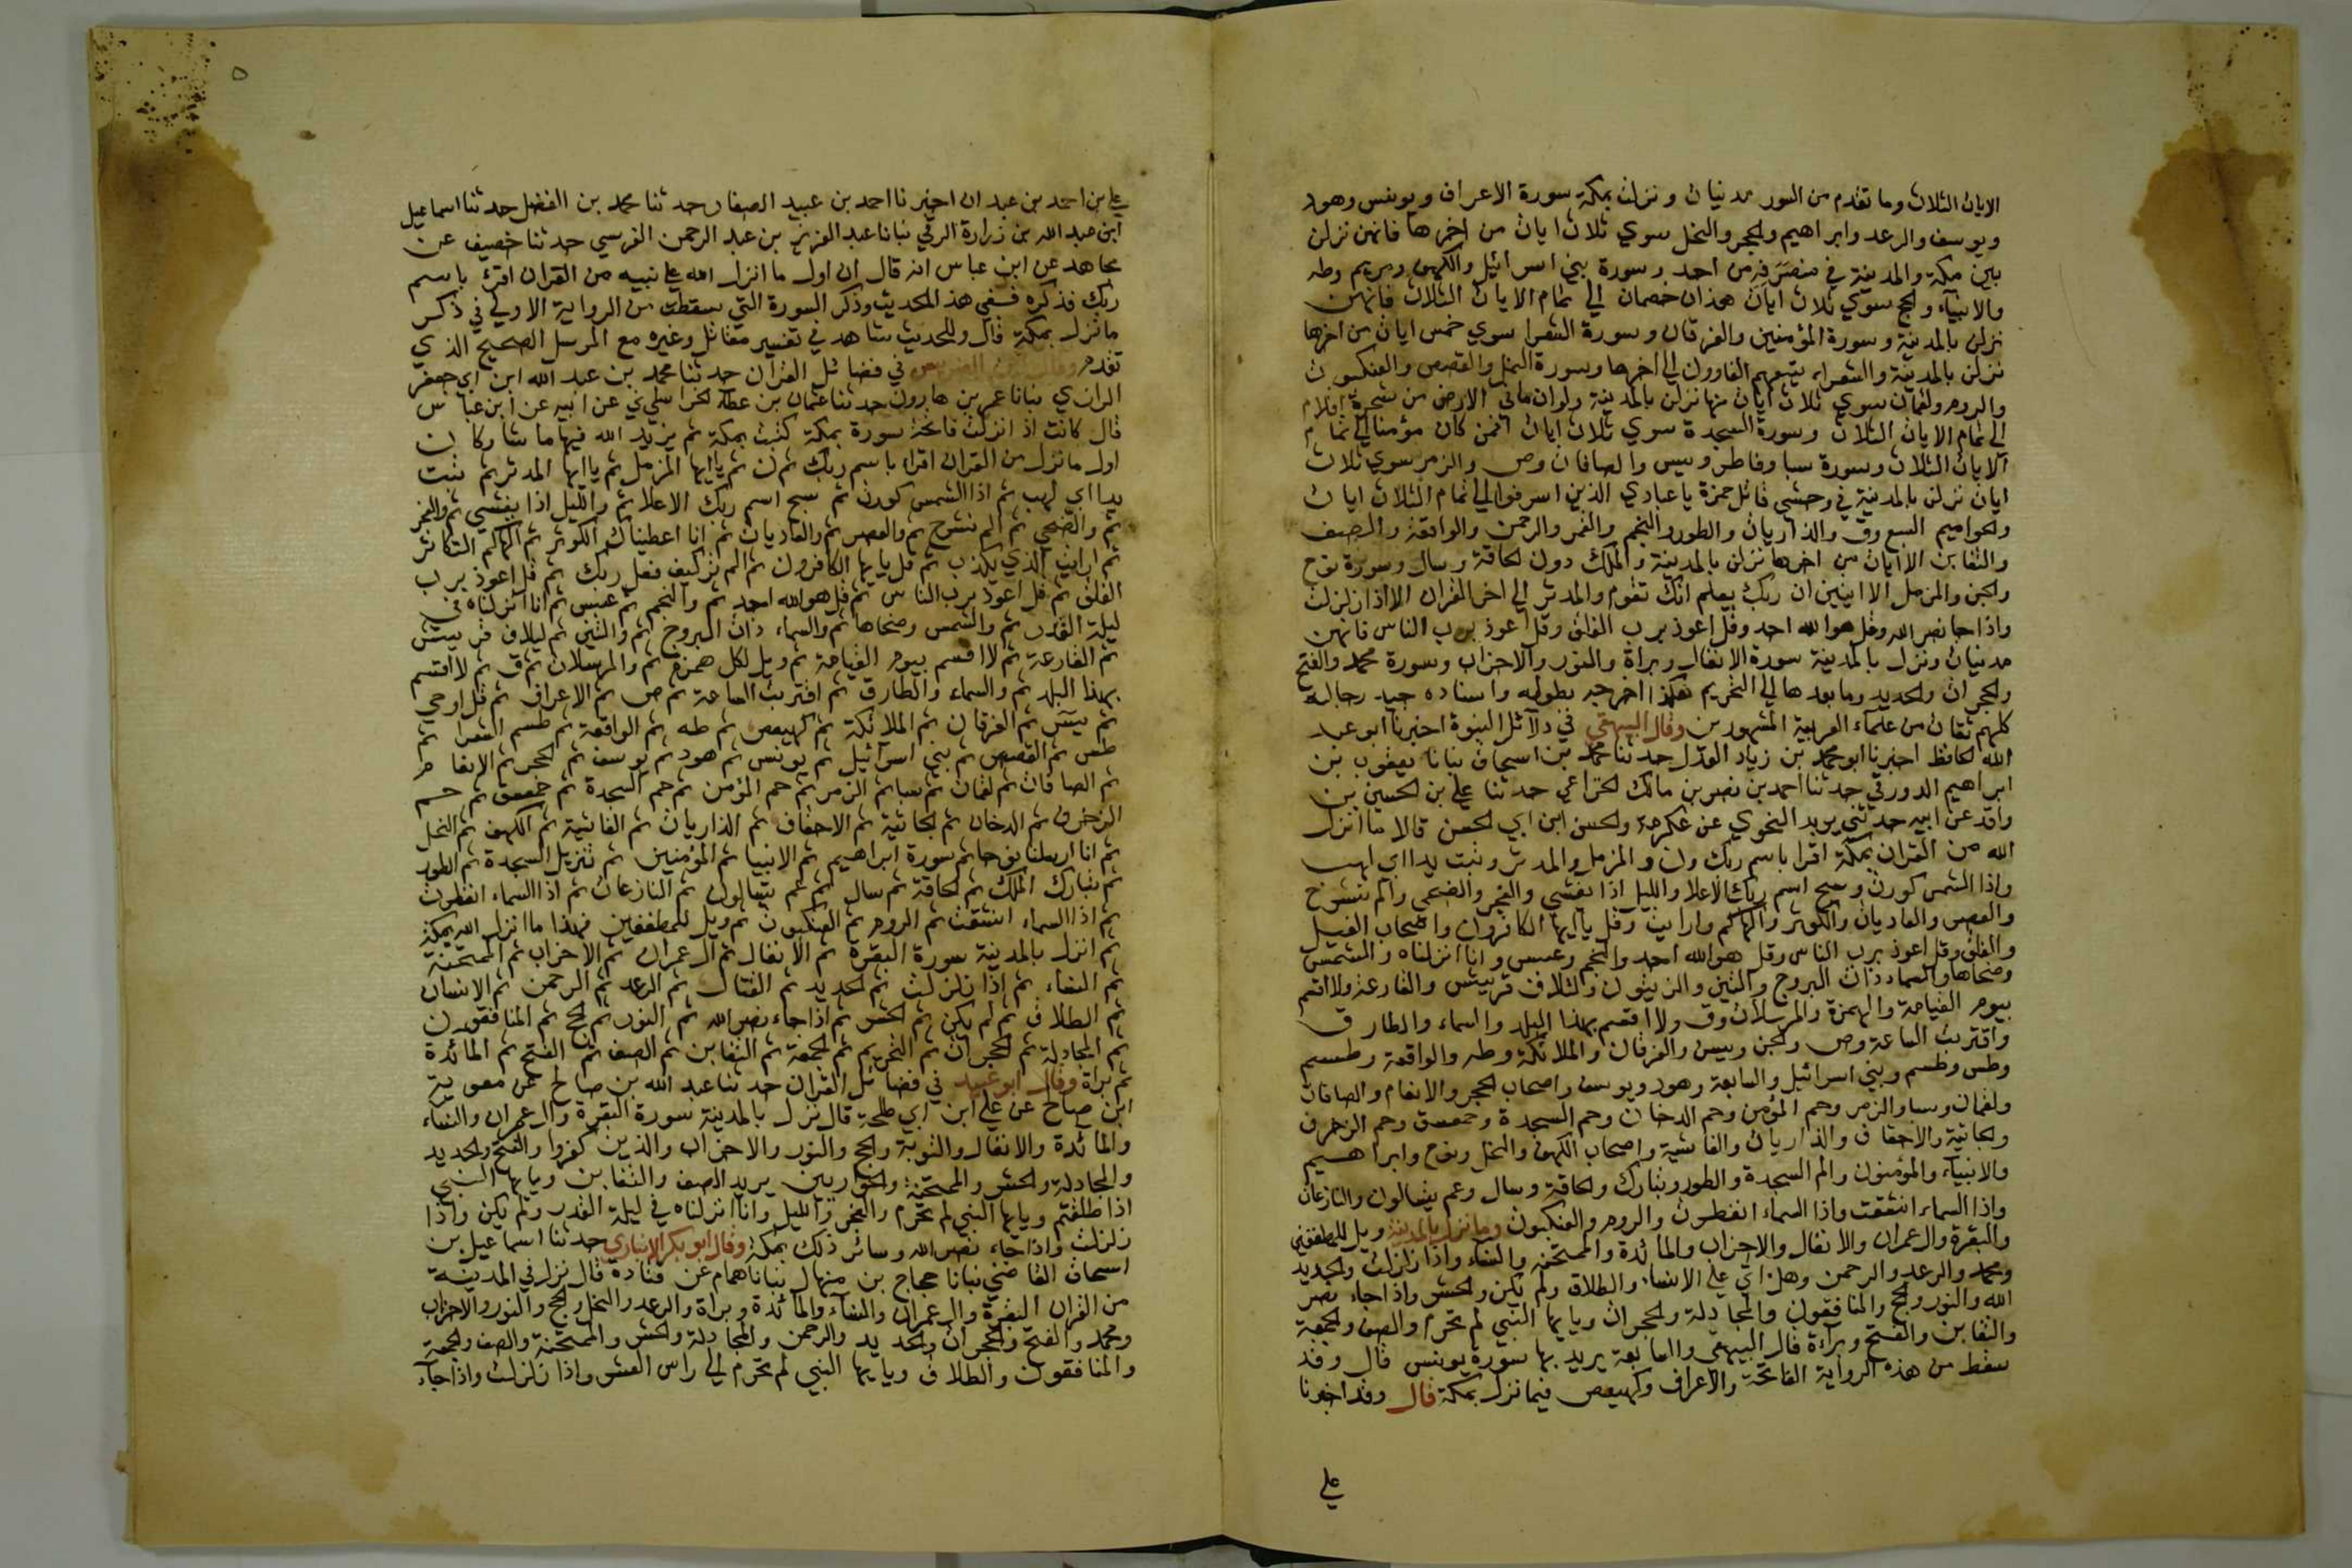 الايات الثلاث وما تقدم من السور مدنيات ونزلت بمكة سورة الاعراف ويونس وهود
ويوسف والرعد وابراهيم والحجر والنحل سوي ثلاث ايات من اخرها فانهن نزلن
بين مكة والمدينة في منصرفه من احد وسورة بني اسرائيل والكهف ومريم وطه
والانبياء والحج سوي ثلاث ايات هذان خصمان الي تمام الايات الثلاث فانهن
نزلن بالمدينة وسورة المؤمنين والفرقان وسورة الشعرا سوي خمس ايات من اخرها
نزلن بالمدينة والشعراء يتبعهم الغاوون الي اخرها وسورة النمل والقصص والعنكبوت
والروم ولقمان سوي ثلاث ايات منها نزلن بالمدينة ولو ان ماني الارض من شجرة اقلام
الي تمام الايات الثلاث وسورة السجدة سوي ثلاث ايات افمن كان مؤمنا الي تمام
الايات الثلاث وسورة سبا وفاطر ويس والصافات وص والزمر سوي ثلاث
ايات نزلن بالمدينة في وحشي قاتل حمزة يا عبادي الذين اسرفوا الي تمام الثلاث ايات
والحواميم السبع وق والذاريات والطور والنجم والقمر والرحمن والواقعة والصف
والتغابن الا ايات من اخرها نزلن بالمدينة والملك دون الحاقة وسال وسورة نوح
والجن والمزمل الا ايتين ان ربك يعلم انك تقوم والمدثر الي اخر القران الا اذا زلزلت
واذا جا نصر الله وقل هو الله احد وقل اعوذ برب الفلق وقل اعوذ برب الناس فانهن
مدنيات ونزل بالمدينة سورة الانفال وبراة والنور والاحزاب وسورة محمد والفتح
والحجرات والحديد وما بعدها الي التحريم هكذا اخرجه بطوله واسناده جيد رجاله
كلهم ثقات من علماء العربية المشهورين وقال البيهقي في دلائل النبوة اخبرنا ابو عبد
الله الحافظ اخبرنا ابو محمد بن زياد العدل حدثنا محمد بن اسحاق نبانا يعقوب بن
ابراهيم الدورقي حدثنا احمد بن نصر بن مالك الخزاعي حدثنا علي بن الحسين بن
واقد عن ابيه حدثني يزيد النحوي عن عكرمة والحسن ابن ابي الحسن قالا ما انزل
الله من القران بمكة اقرا باسم ربك ون والمزمل والمدثر وتبت يدا ابي لهب
واذا الشمس كورت وسبح اسم ربك الاعلا والليل اذا يغشي والفجر والضحي والم نشرح
والعصر والعاديات والكوثر والهاكم وارايت وقل يا ايها الكافرون واصحاب الفيل
والفلق وقل اعوذ برب الناس وقل هو الله احد والنجم وعبس وانا انزلناه والشمس
وضحاها والسماء ذات البروج والتين والزيتون ولئلاف قريش والقارعة ولا اقسم
بيوم القيامة والهمزة والمرسلات وق ولا اقسم بهذا البلد والسماء والطارق
واقتربت الساعة وص والجن ويس والفرقان والملائكة وطه والواقعة وطسم
وطس وطسم وبني اسرائيل والسابعة وهود ويوسف واصحاب الحجر والانعام والصافات
ولقمان وسبا والزمر وحم المؤمن وحم الدخان وحم السجدة وحمعسق وحم الزخرف
والجاثية والاحقاف والذاريات والغاشية واصحاب الكهف والنحل ونوح وابراهيم
والانبياء والمؤمنون والم السجدة والطور وتبارك والحاقة وسال وعم يتسالون والنازعات
واذا السماء انشقت واذا السماء انفطرت والروم والعنكبوت وما نزل بالمدينة ويل للمطففين
والبقرة وال عمران والانفال والاحزاب والمائدة والممتحنة والنساء واذا زلزلت والحديد
ومحمد والرعد والرحمن وهل اتي علي الانسان والطلاق ولم يكن والحشر واذا جاء نصر
الله والنور والحج والمنافقون والمجادلة والحجرات ويا يها النبي لم تحرم والصف والجمعة
والتغابن والفتح وبراءة قال البيهقي والسابعة يريد بها سورة يونس قال وقد
سقط من هذه الرواية الفاتحة والاعراف وكهيعص فيما نزل بمكة قال وقد اخبرنا
علي
٥
علي بن احمد بن عبدان اخبرنا احمد بن عبيد الصفار حدثنا محمد بن الفضل حدثنا اسماعيل
ابن عبد الله بن زرارة الرقي نبانا عبد العزيز بن عبد الرحمن القرسي حدثنا خصيف عن
مجاهد عن ابن عباس انه قال ان اول ما انزل الله علي نبيه من القران اقرئ باسم
ربك فذكره فسفي هذ الحديث وذكر السورة التي سقطت من الرواية الاولي في ذكر
ما نزل بمكة قال وللحديث شاهد في تفسير مقاتل وغيره مع المرسل الصحيح الذي
تقدم وقال ابن الضريس في فضائل القران حدثنا محمد بن عبد الله ابن ابي جعفر
الرازي نبانا عمر بن هارون حدثنا عثمان بن عطاء الخراساني عن ابيه عن ابن عباس
قال كانت اذ انزلت فاتحة سورة بمكة كتبت بمكة ثم يزيد الله فيها ما شا وكان
اول ما نزل من القران اقرا باسم ربك ثم ن ثم يا ايها المزمل ثم يا ايها المدثر ثم تبت
يدا ابي لهب ثم اذا الشمس كورت ثم سبح اسم ربك الاعلا ثم والليل اذا يغشي ثم والفجر
ثم والضحي ثم الم نشرح ثم والعصر ثم والعاديات ثم انا اعطيناك الكوثر ثم الهاكم التكاثر
ثم ارايت الذي يكذب ثم قل يا يها الكافرون ثم الم تر كيف فعل ربك ثم قل اعوذ برب
الفلق ثم قل اعوذ برب الناس ثم قل هو الله احد ثم والنجم ثم عبس ثم انا انزلناه في
ليلة القدر ثم والشمس وضحاها ثم والسماء ذات البروج ثم والتين ثم ليلاف قريش
ثم القارعة ثم لا اقسم بيوم القيامة ثم ويل لكل همزة ثم والمرسلات ثم ق ثم لا اقسم
بهذا البلد ثم والسماء والطارق ثم اقتربت الساعة ثم ص ثم الاعراف ثم قل اوحي
ثم يس ثم الفرقان ثم الملائكة ثم كهيعص ثم طه ثم الواقعة ثم طسم الشعرا ثم
طس ثم القصص ثم بني اسرائيل ثم يونس ثم هود ثم يوسف ثم الحجر ثم الانعام
ثم الصافات ثم لقمان ثم سبا ثم الزمر ثم حم المؤمن ثم حم السجدة ثم حمعسق ثم حم
الزخرف ثم الدخان ثم الجاثية ثم الاحقاف ثم الذاريات ثم الغاشية ثم الكهف ثم النحل
ثم انا ارسلنا نوحا ثم سورة ابراهيم ثم الانبيا ثم المؤمنين ثم تنزيل السجدة ثم الطور
ثم تبارك الملك ثم الحاقة ثم سال ثم عم يتسالون ثم النازعات ثم اذا السماء انفطرت
ثم اذا السماء انشقت ثم الروم ثم العنكبوت ثم ويل للمطففين فهذا ما انزل الله بمكة
ثم انزل بالمدينة سورة البقرة ثم الانفال ثم ال عمران ثم الاحزاب ثم الممتحنة
ثم النساء ثم اذا زلزلت ثم الحديد ثم القتال ثم الرعد ثم الرحمن ثم الانسان
ثم الطلاق ثم لم يكن ثم الحشر ثم اذا جاء نصر الله ثم النور ثم الحج ثم المنافقون
ثم المجادلة ثم الحجرات ثم التحريم ثم الجمعة ثم التغابن ثم الصف ثم الفتح ثم المائدة
ثم براة وقال ابو عبيد في فضائل القران حدثنا عبد الله بن صالح عن معوية
ابن صالح عن علي ابن ابي طلحة قال نزل بالمدينة سورة البقرة وال عمران والنساء
والمائدة والانفال والتوبة والحج والنور والاحزاب والذين كفروا والفتح والحديد
والمجادلة والحشر والممتحنة والحواريين يريد الصف والتغابن ويا يها النبي
اذا طلقتم ويا يها النبي لم تحرم والفجر والليل وانا انزلناه في ليلة القدر ولم يكن واذا
زلزلت واذا جاء نصر الله وسائر ذلك بمكة وقال ابو بكر الانباري حدثنا اسماعيل بن
اسحاق القاضي نبانا حجاج بن منهال نبانا همام عن قتادة قال نزل في المدينة
من القران البقرة وال عمران والنساء والمائدة وبراة والرعد والنحل والحج والنور والاحزاب
ومحمد والفتح والحجرات والحديد والرحمن والمجادلة والحشر والممتحنة والصف والجمعة
والمنافقون والطلاق ويا يها النبي لم تحرم الي راس العشر واذا زلزلت واذا جاء